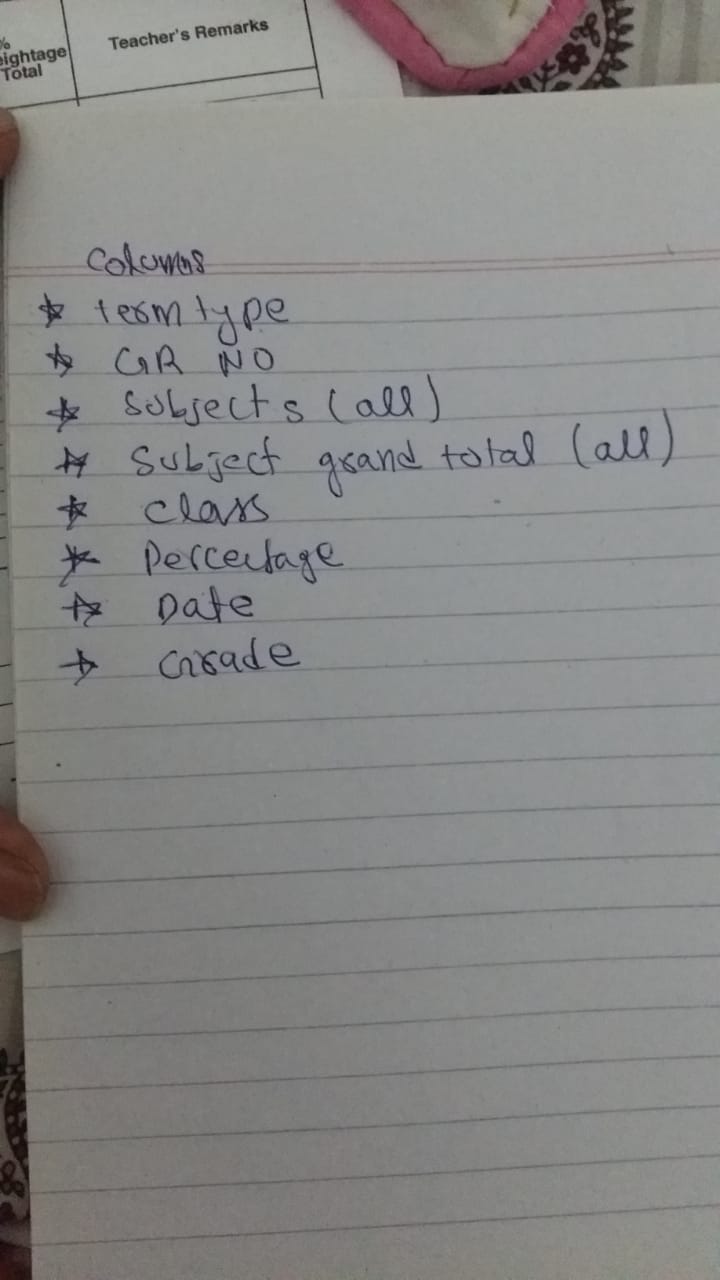 %
eightage
Total
Teacher's Remarks
Columns
term type
GR NO
Subjects (all)
Subject grand total (all)
class
Percentage
Date
Grade